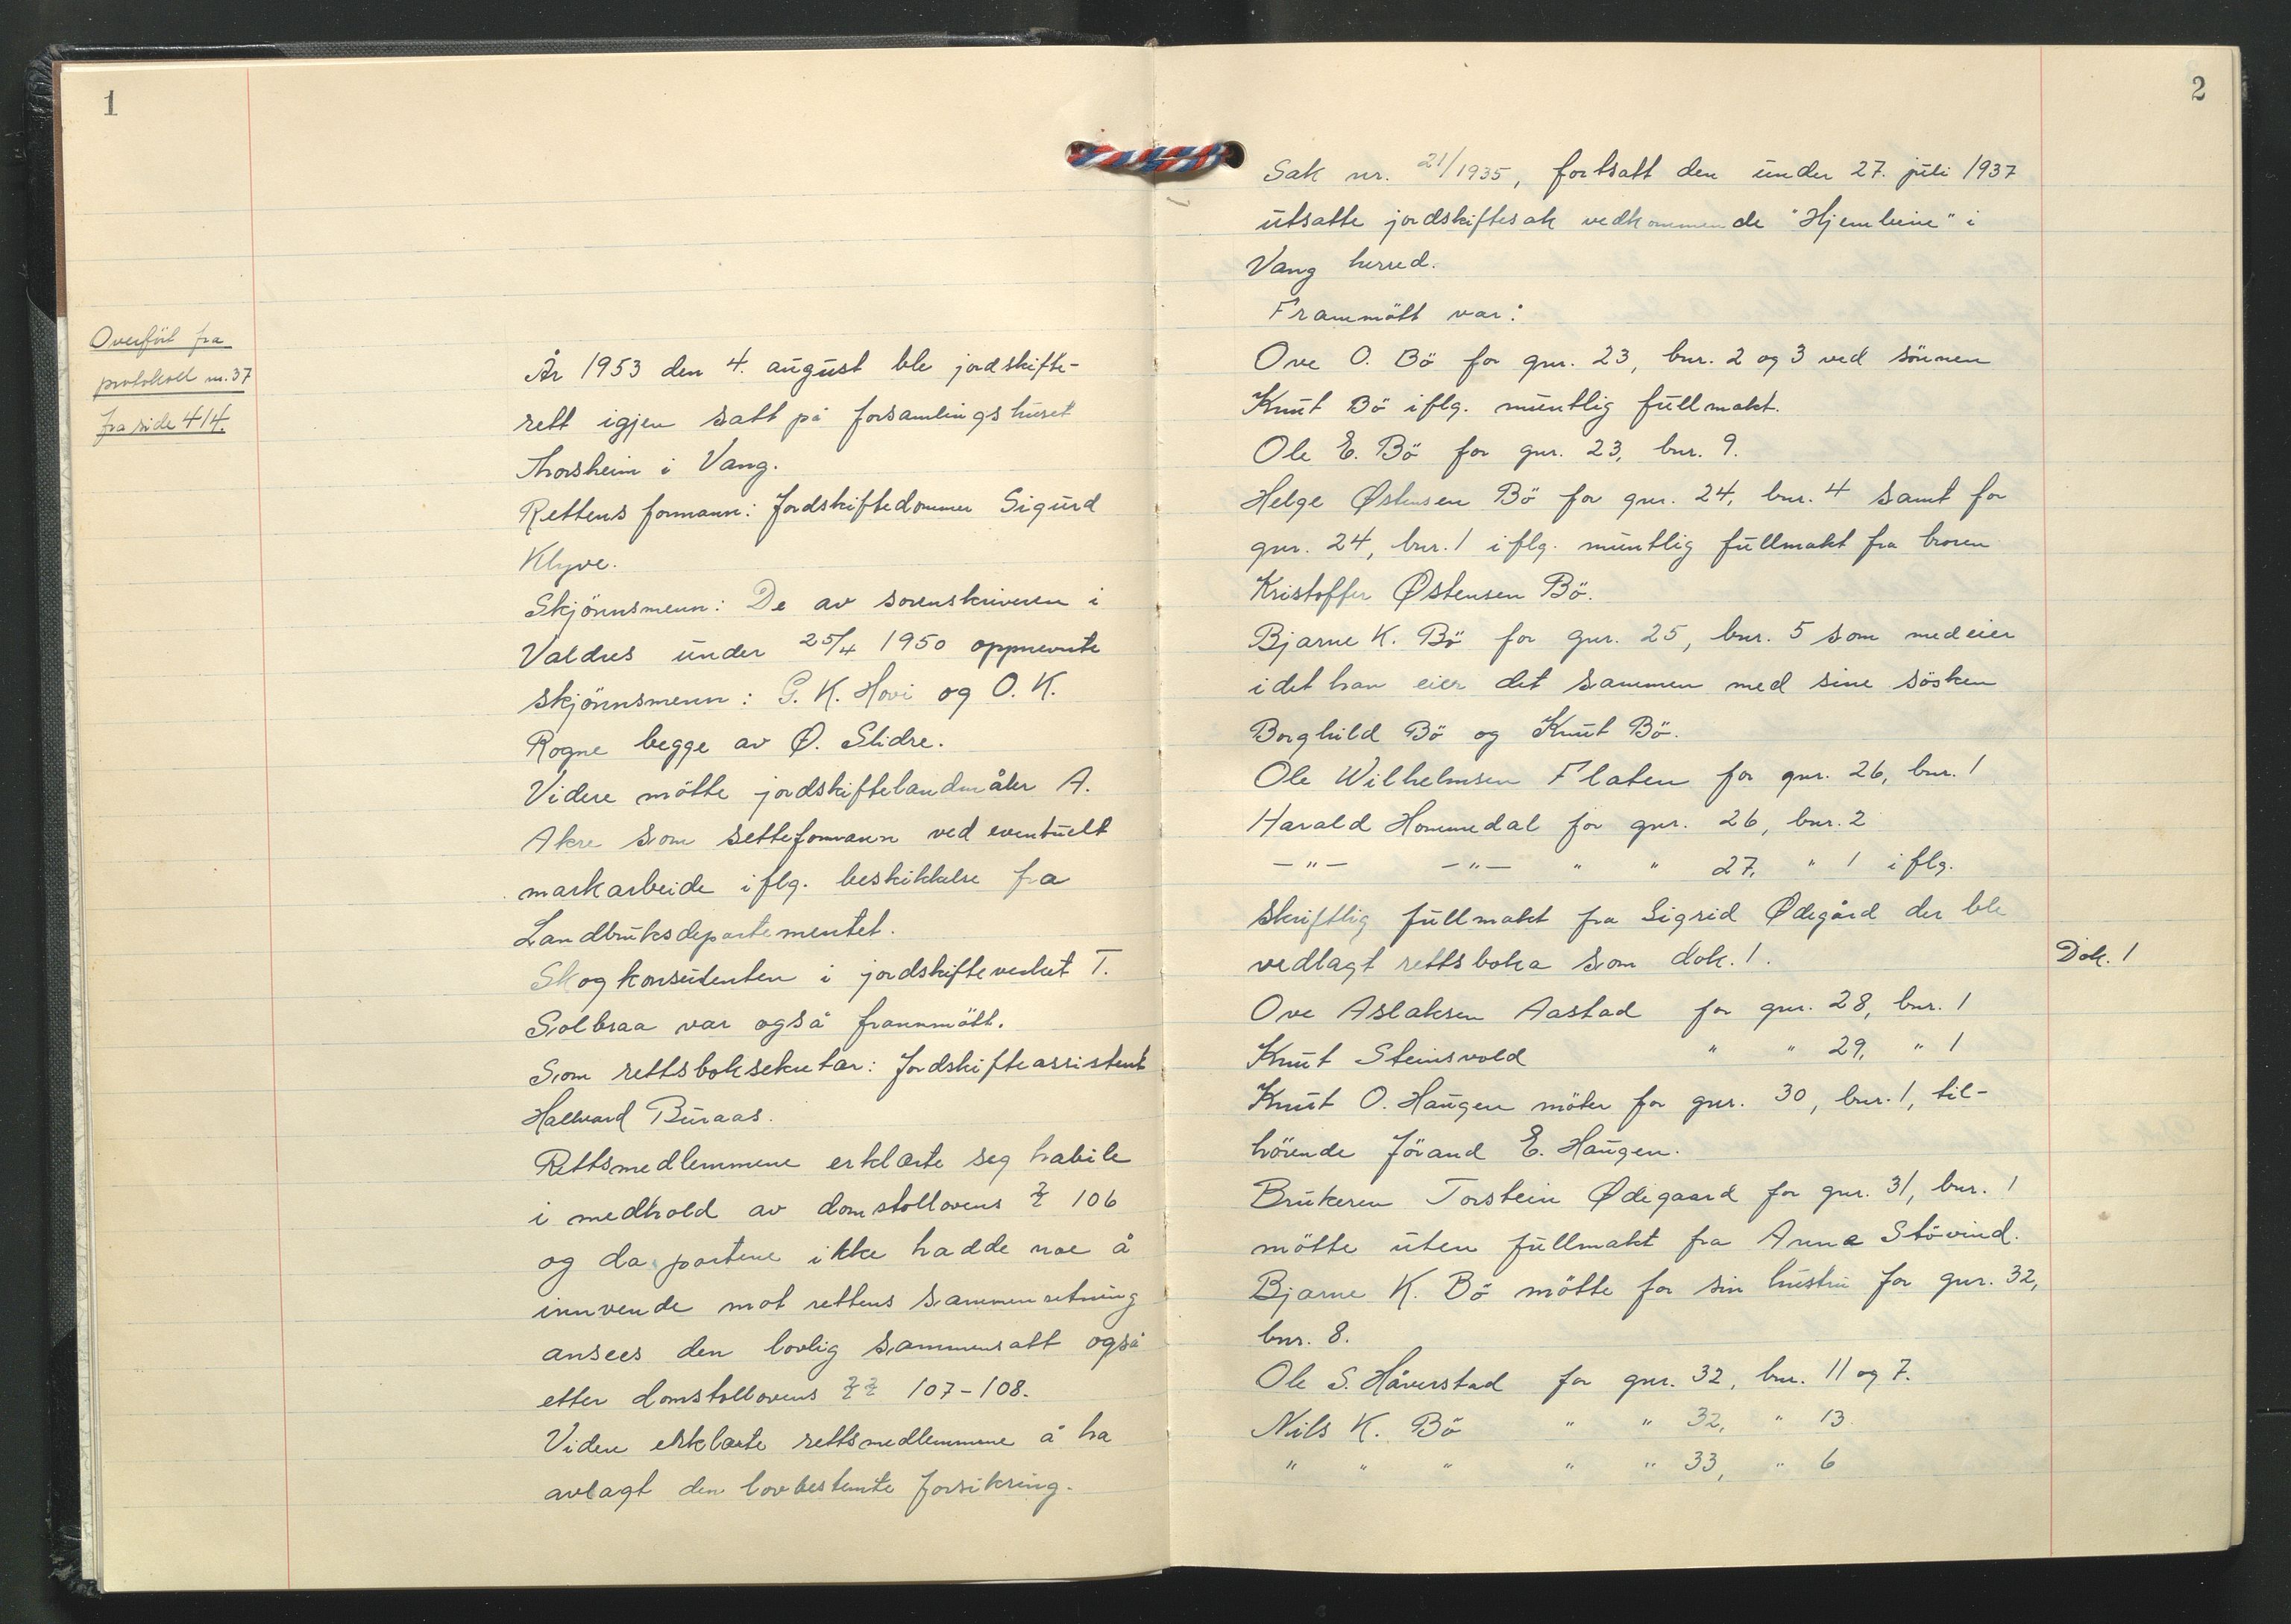 1
Overfört fra
protokoll nr. 37
fra side 414.
År 1953 den 4. august ble jordskifte-
rett igjen satt på forsamlingshuset
Thorsheim i Vang.
Rettens formann: Jordskiftedommer Sigurd
Klyve.
Skjönnsmenn: De av sorenskriveren i
Valdres under 25/4 1950 oppnevnte
skjönnsmenn: G. K. Hovi og O. K.
Rogne begge av Ø. Slidre.
Videre mötte jordskiftelandmåler A.
Akre som setteformann ved eventuelt
markarbeide iflg. beskikkelse fra
Landbruksdepartementet.
Skogkonsulenten i jordskifteverket T.
Solbraa var også frammött.
Som rettsboksekretær: Jordskifteassistent
Hallvard Buraas.
Rettsmedlemmene erklærte seg habile
i medhold av domstollovens § 106
og da partene ikke hadde noe å
innvende mot rettens sammensetning
ansees den lovlig sammensatt også
etter domstollovens §§ 107-108.
Videre erklærte rettsmedlemmene å ha
avlagt den lovbestemte forsikring.
2
Sak nr. 21/1935, fortsatt den under 27. juli 1937
utsatte jordskiftesak vedkommende "Hjemleine" i
Vang herred.
Frammött var:
Ove O. Bö for gnr. 23, bnr. 2 og 3 ved sönnen
Knut Bö iflg. muntlig fullmakt.
Ole E. Bö for gnr. 23, bnr. 9.
Helge Østensen Bö for gnr. 24, bnr. 4 samt for
gnr. 24, bnr. 1 iflg. muntlig fullmakt fra broren
Kristoffer Østensen Bö.
Bjarne K. Bö for gnr. 25, bnr. 5 som medeier
idet han eier det sammen med sine sösken
Borghild Bö og Knut Bö.
Ole Wilhelmsen Flaten for gnr. 26, bnr. 1
Harald Hommedal for gnr. 26, bnr. 2
-"- -"- " " 27, " 1 iflg.
skriftlig fullmakt fra Sigrid Ødegård der ble
vedlagt rettsboka som dok. 1.
Dok. 1
Ove Aslaksen Aastad for gnr. 28, bnr. 1
Knut Steinsvold " " 29, " 1
Knut O. Haugen möter for gnr. 30, bnr. 1, til-
hörende Jörand E. Haugen.
Brukeren Torstein Ødegaard for gnr. 31, bnr. 1
mötte uten fullmakt fra Anna Stövind.
Bjarne K. Bö mötte for sin hustru for gnr. 32,
bnr. 8.
Ole S. Håverstad for gnr. 32, bnr. 11 og 7.
Nils K. Bö " " 32, " 13.
" " " " " 33, " 6